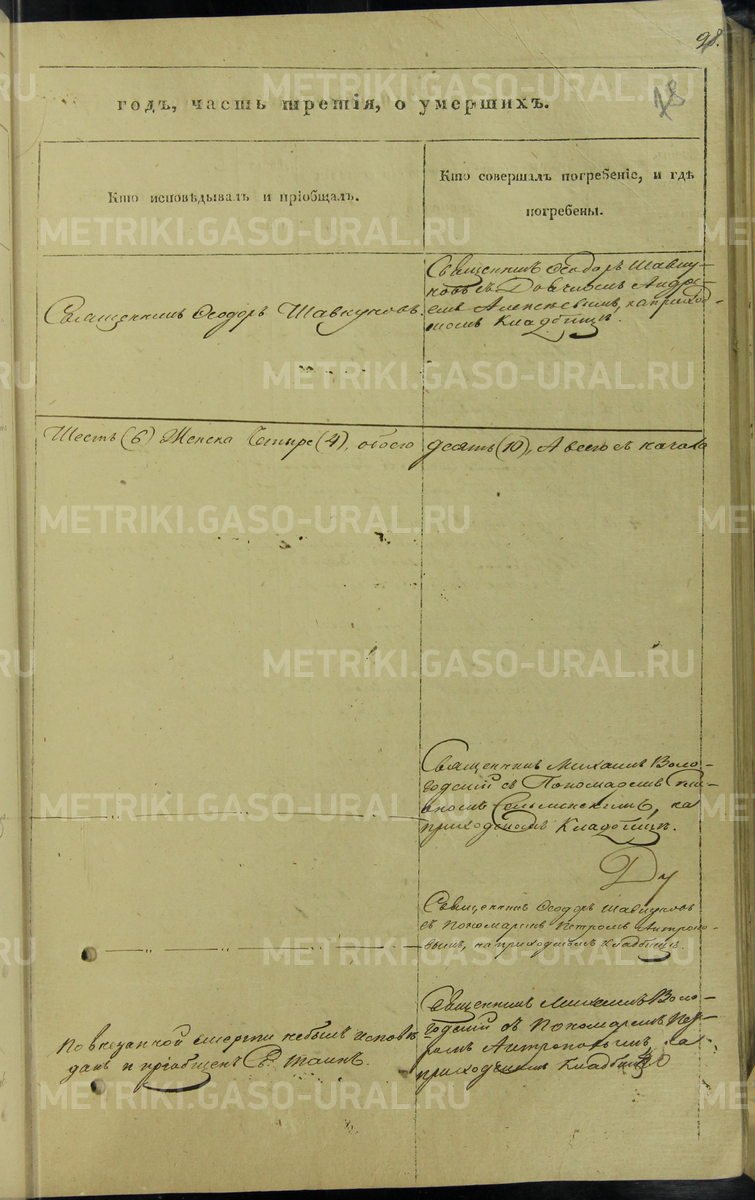 28.
28
годъ, часть третія, о умершихъ.
Кто исповѣдывалъ и пріобщалъ.
Кто совершалъ погребеніе, и гдѣ
погребены.
Священникъ Ѳеодоръ Шавкуновъ.
Священникъ Ѳеодоръ Шавку-
новъ съ Дьячкомъ Андре-
емъ Алексѣевымъ, на приход-
скомъ Кладбищѣ.
Шесть (6) Женска Четыре (4), обоего десять (10), А всего съ начала
Священникъ Михаилъ Воло-
годскій съ Пономаремъ
на
приходскомъ Кладбищѣ.
Священникъ Ѳеодоръ Шавкуновъ
съ Пономаремъ Петромъ Антропо-
вымъ, на приходскомъ Кладбищѣ.
По внезапной смерти небылъ исповѣ-
данъ и пріобщенъ Св. Таинъ.
Священникъ Михаилъ Воло-
годскій съ Пономаремъ Пет-
ромъ Антроповымъ, на
приходскомъ Кладбищѣ
METRIKI.GASO-URAL.RU